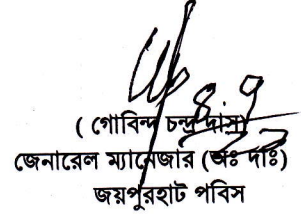 ( গোবিন্দ চন্দ্র দাস)
জেনারেল ম্যানেজার (অঃ দাঃ)
জয়পুরহাট পবিস